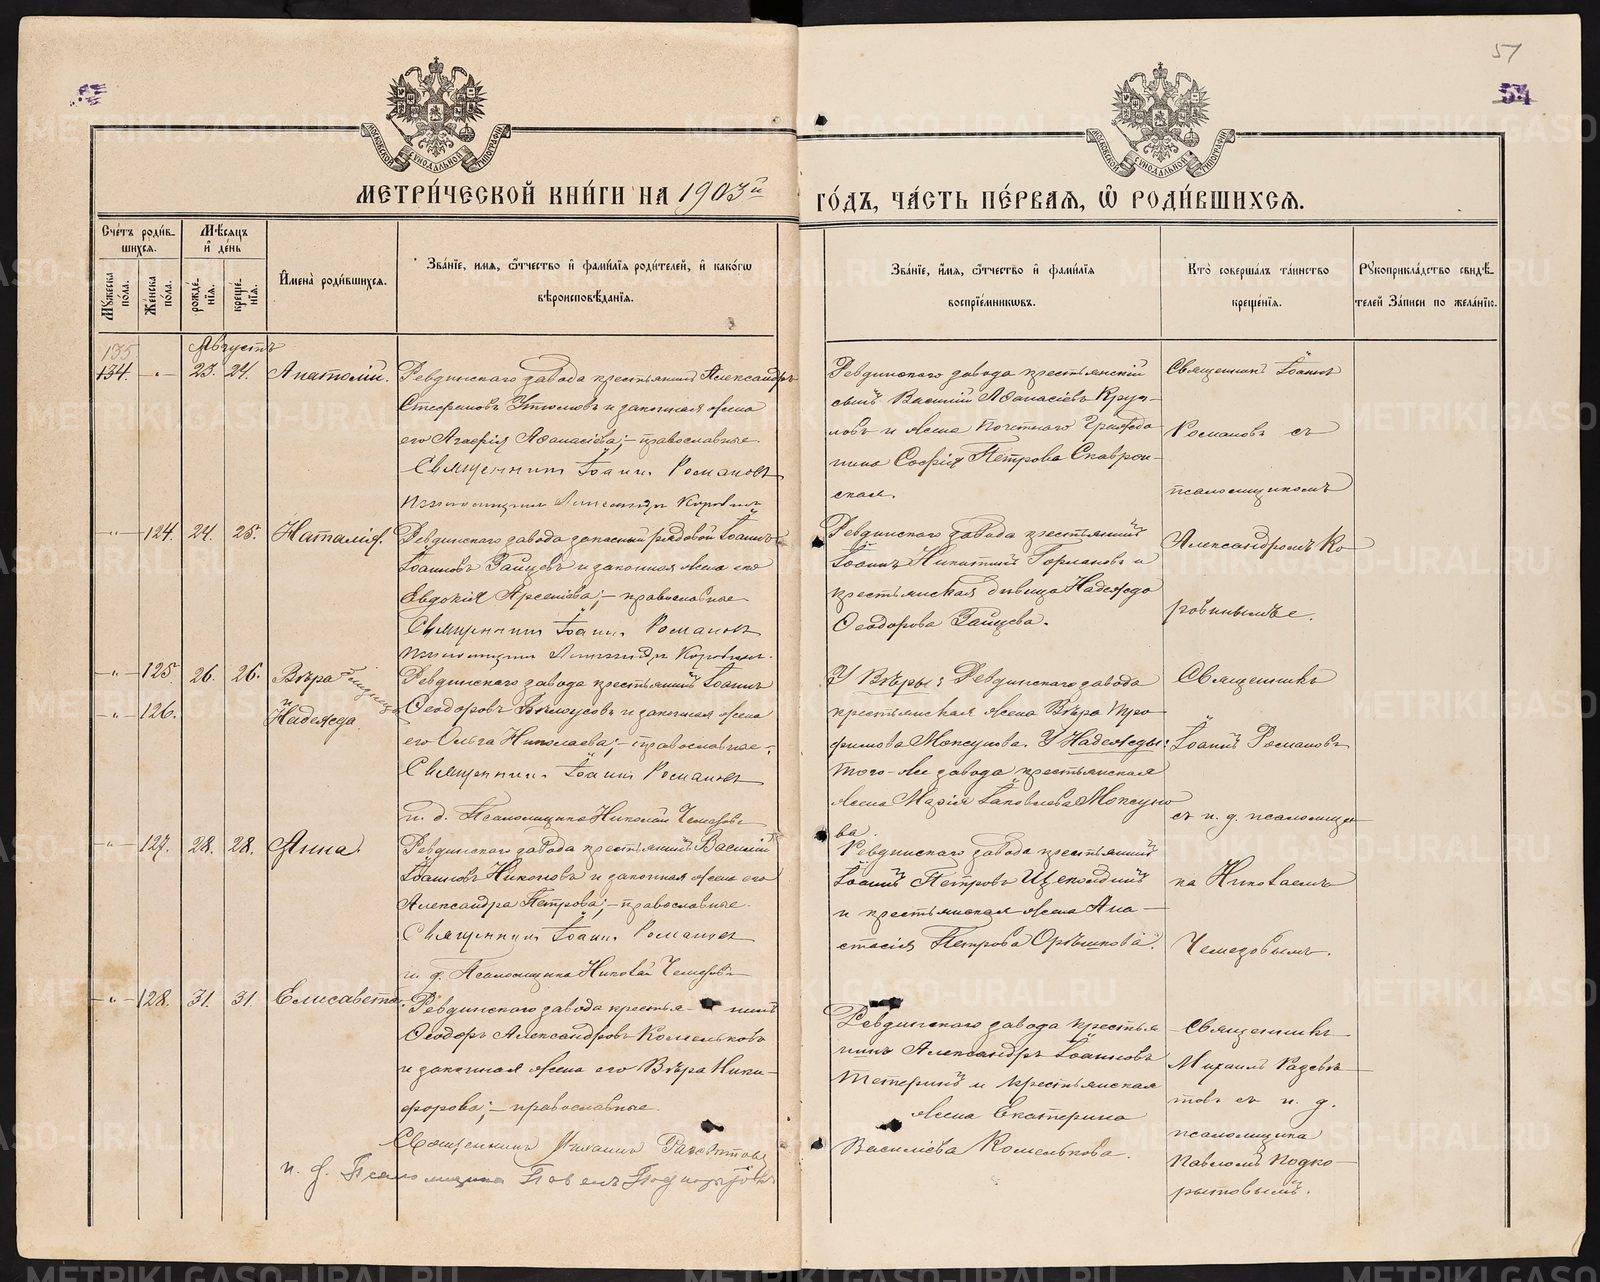 51
54
МОСКОВСКОЙ СѴНОДАЛЬНОЙ ТИПОГРАФІИ
МОСКОВСКОЙ СѴНОДАЛЬНОЙ ТИПОГРАФІИ
МЕТРИ́ЧЕСКОЙ КНИ́ГИ НА 1903й ГО́ДЪ, ЧА́СТЬ ПЕ́РВАЯ, Ѽ РОДИ́ВШИХСЯ.
Сче́тъ роди́вшихся.
Му́жеска пола.
Же́нска пола.
Мѣ́сяцъ и де́нь
рожде́нїя.
креще́нїя.
Имена̀ роди́вшихся.
Зва́нїе, имя, ѻтчество и фами́лїя роди́телей, и како́гѡ
вѣроисповѣ́данїя.
Зва́нїе, имя, ѻтчество и фами́лїя
воспрїе́мниковъ.
Кто̀ соверша́лъ та́инство
креще́нїя.
Рукоприкла́дство свидѣ́
телей за́писи по жела́нїю.
135
Августъ
134. - „ - 23. 24. Анатолій.
Ревдинскаго завода крестьянинъ Александръ
Стефановъ Утюмовъ и законная жена
его Агафія Аѳанасіева; – православные.
Священникъ Іоаннъ Романовъ
Псаломщикъ Александръ Коровинъ
Ревдинскаго завода крестьянскій
сынъ Василій Аѳанасіевъ
и жена почетнаго гражда
нина Софія Петрова Скаврон-
ская.
Священникъ Іоаннъ
Романовъ съ
псаломщикомъ
Александромъ Ко-
ровинымъ.
- „ - 124. 24. 25. Наталія.
Ревдинскаго завода запасный рядовой Іоаннъ
Іоанновъ Зайцевъ и законная жена его
Евдокія Арсеніева; – православные
Священникъ Іоаннъ Романовъ
Псаломщикъ Александръ Коровинъ.
Ревдинскаго завода крестьянинъ
Іоаннъ Никитинъ и
крестьянская дѣвица Надежда
Ѳеодорова Зайцева.
- „ - 125. 26. 26. Вѣра и близнецы
- „ - 126. Надежда
Ревдинскаго завода крестьянинъ Іоаннъ
Ѳеодоровъ и законная жена
его Ольга Николаева; – православные.
Священникъ Іоаннъ Романовъ
и. д. Псаломщика Николай Чемезовъ
У Вѣры: Ревдинскаго завода
крестьянская жена Вѣра
Моксунова. У Надежды:
того-же завода крестьянская
жена Марія Іаковлева Моксуно
ва.
Священникъ
Іоаннъ Романовъ
съ и. д. псаломщи-
ка Николаемъ
Чемезовымъ.
- „ - 127. 28. 28. Анна.
Ревдинскаго завода крестьянинъ Василій
Іоанновъ Никоновъ и законная жена его
Александра Петрова; – православные.
Священникъ Іоаннъ Романовъ
и. д. Псаломщика Николай Чемезовъ
Ревдинскаго завода крестьянинъ
Іоаннъ Петровъ Щеколдинъ
и крестьянская жена Ана-
стасія Петрова Орѣшкова.
- „ - 128. 31. 31. Елисавета.
Ревдинскаго завода крестья-нинъ
Ѳеодоръ Александровъ Комельковъ
и законная жена его Вѣра Ники-
форова; – православные.
Священникъ Михаилъ
и. д. Псаломщика Павелъ Подкорытовъ
Ревдинскаго завода крестья
нинъ Александръ Іоанновъ
Тетеринъ и крестьянская
жена Екатерина
Василіева Комелькова.
Священникъ
Михаилъ
товъ съ и. д.
псаломщика
Павломъ Подко-
рытовымъ.
METRIKI.GASO-URAL.RU